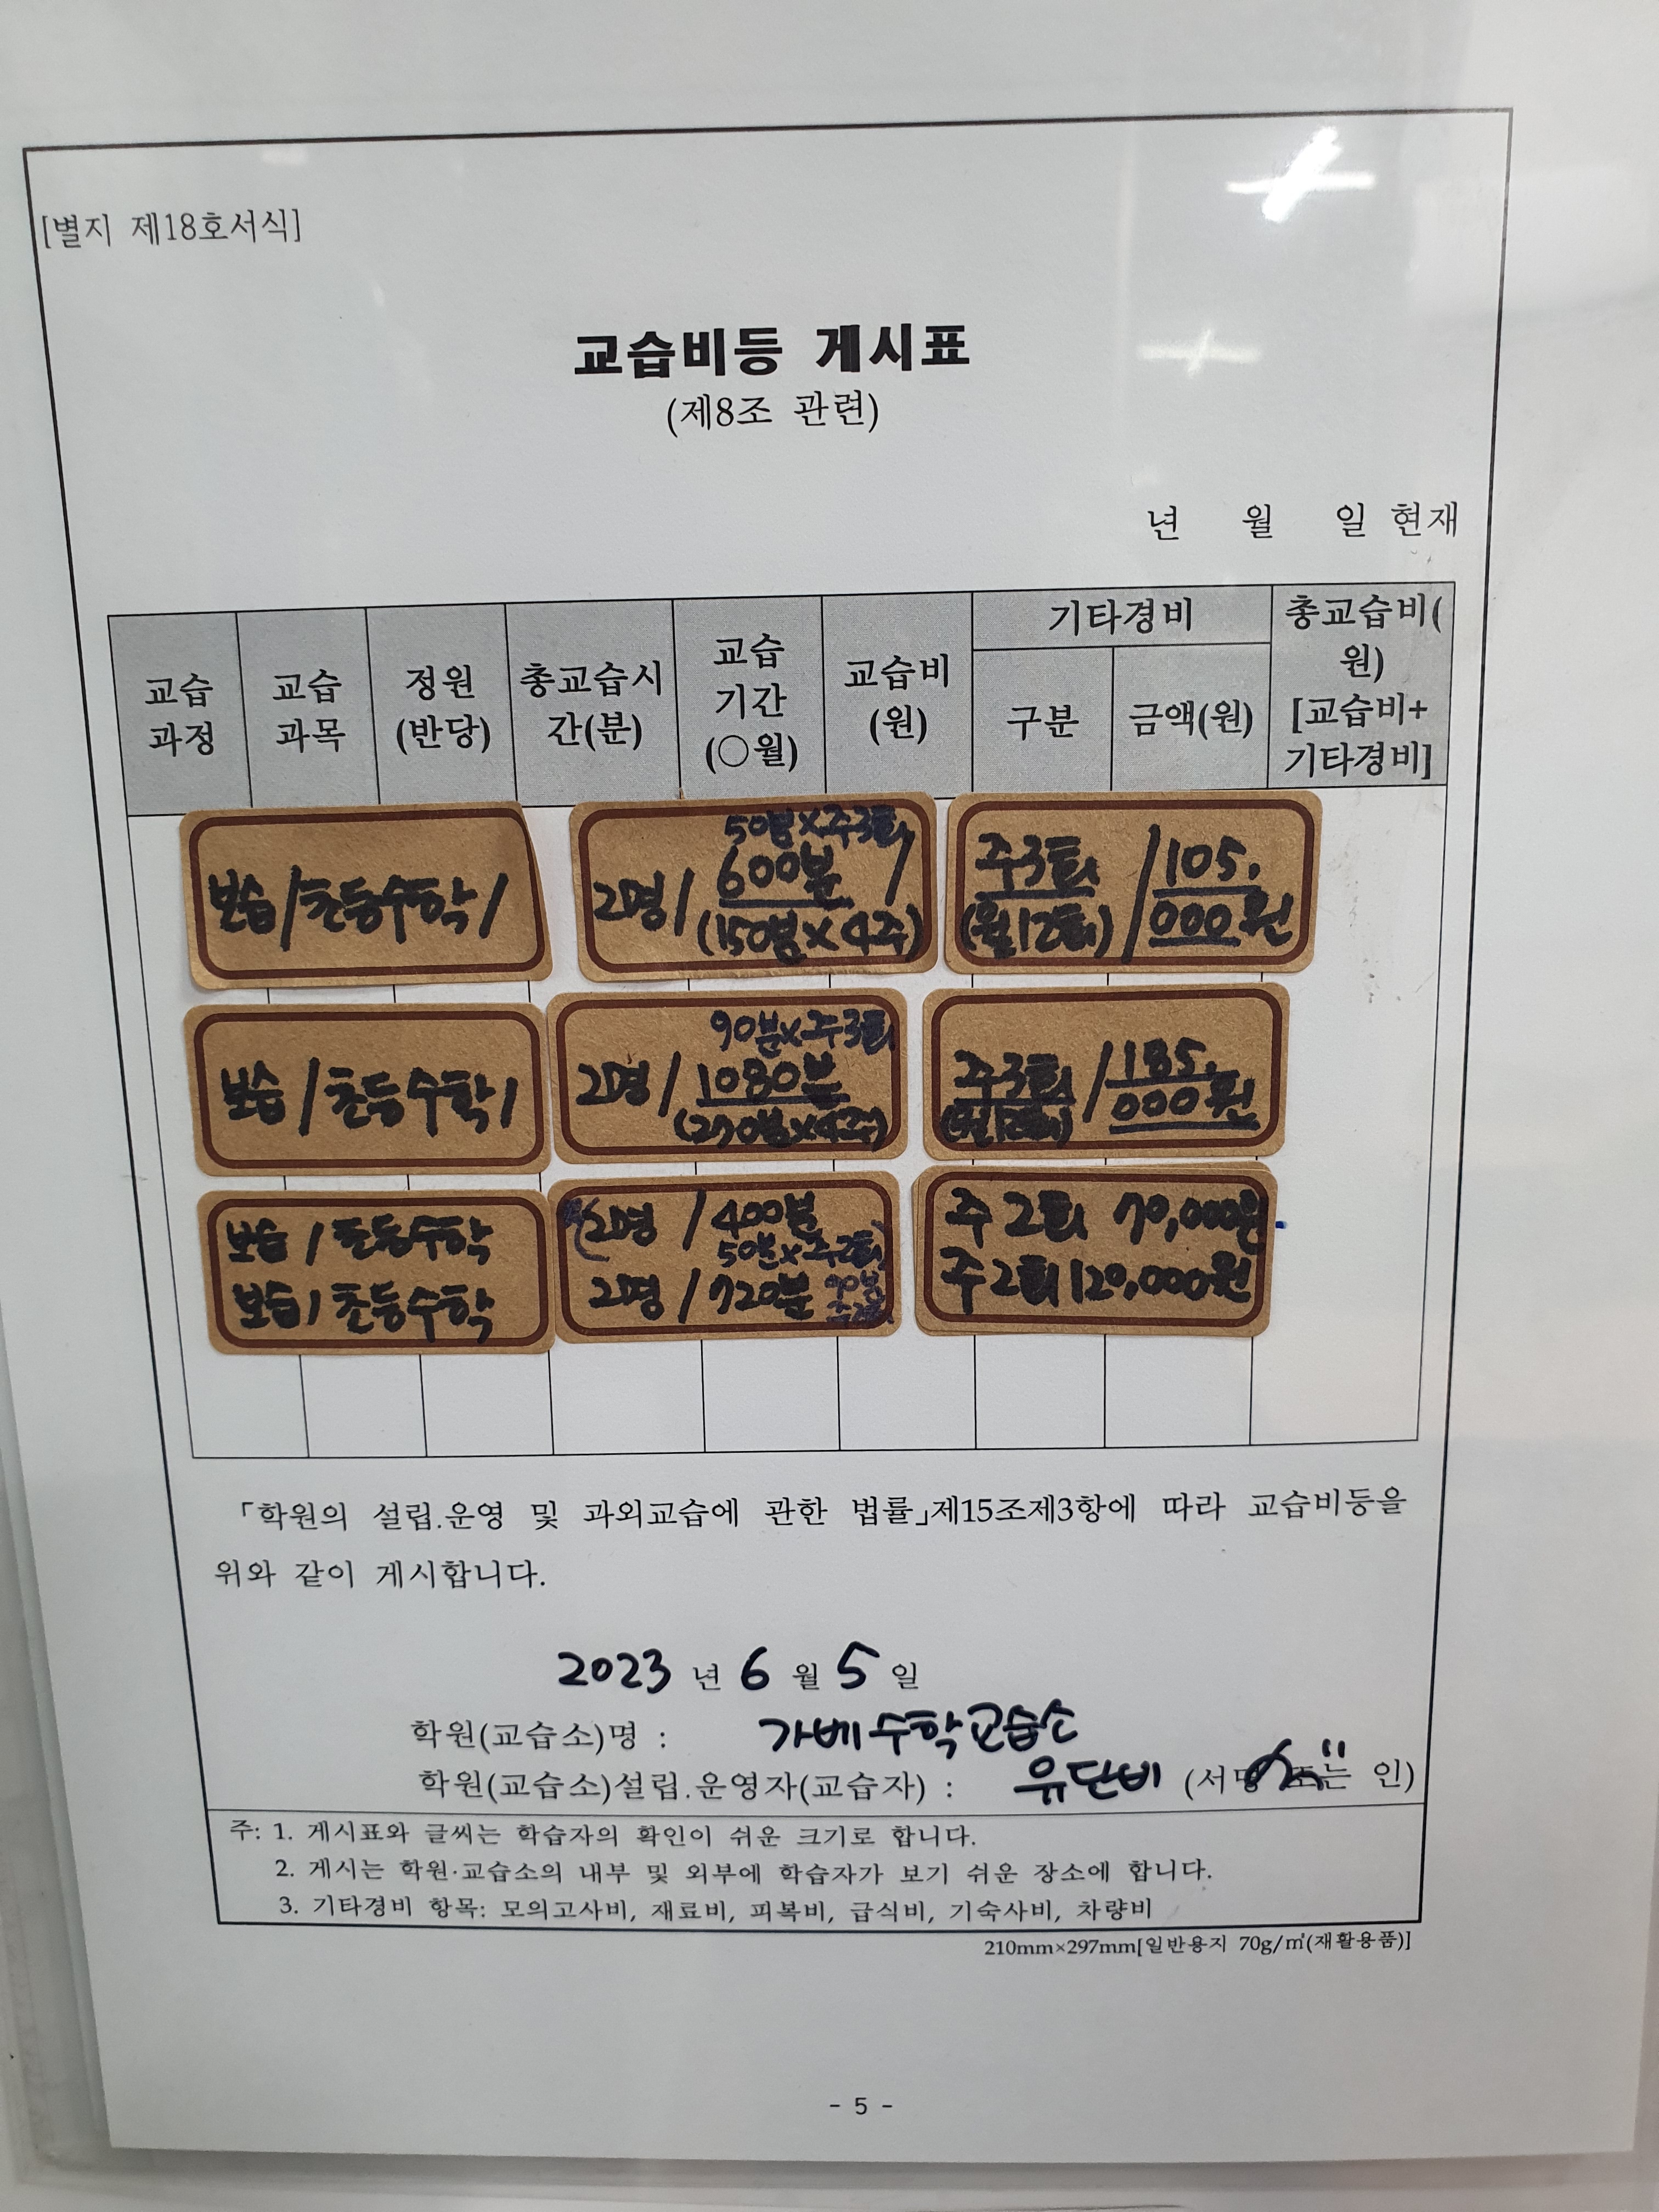 [별지 제18호서식]
교습비등 게시표
(제8조 관련)
년 월 일 현재
교습 과정
교습 과목
정원 (반당)
총교습시간(분)
교습 기간 (○월)
교습비 (원)
기타경비
구분
금액(원)
총교습비(원) [교습비+ 기타경비]
보습/초등수학/
50분×주3회
2명/ 600분 /
(150분×4주)
주3회 / 105,000원
(월12회)
보습/초등수학/
90분×주3회
2명/ 1080분
(270분×4주)
주3회 / 185,000원
(월12회)
보습/초등수학
보습/초등수학
2명 / 400분
50분×주2회
2명 / 720분 90분 주2회
주2회 70,000원
주2회 120,000원
「학원의 설립.운영 및 과외교습에 관한 법률」제15조제3항에 따라 교습비등을
위와 같이 게시합니다.
2023 년 6 월 5 일
학원(교습소)명 : 가베수학교습소
학원(교습소)설립.운영자(교습자) : 유단비 (서명 또는 인)
주: 1. 게시표와 글씨는 학습자의 확인이 쉬운 크기로 합니다.
2. 게시는 학원·교습소의 내부 및 외부에 학습자가 보기 쉬운 장소에 합니다.
3. 기타경비 항목: 모의고사비, 재료비, 피복비, 급식비, 기숙사비, 차량비
210mm×297mm[일반용지 70g/㎡(재활용품)]
- 5 -